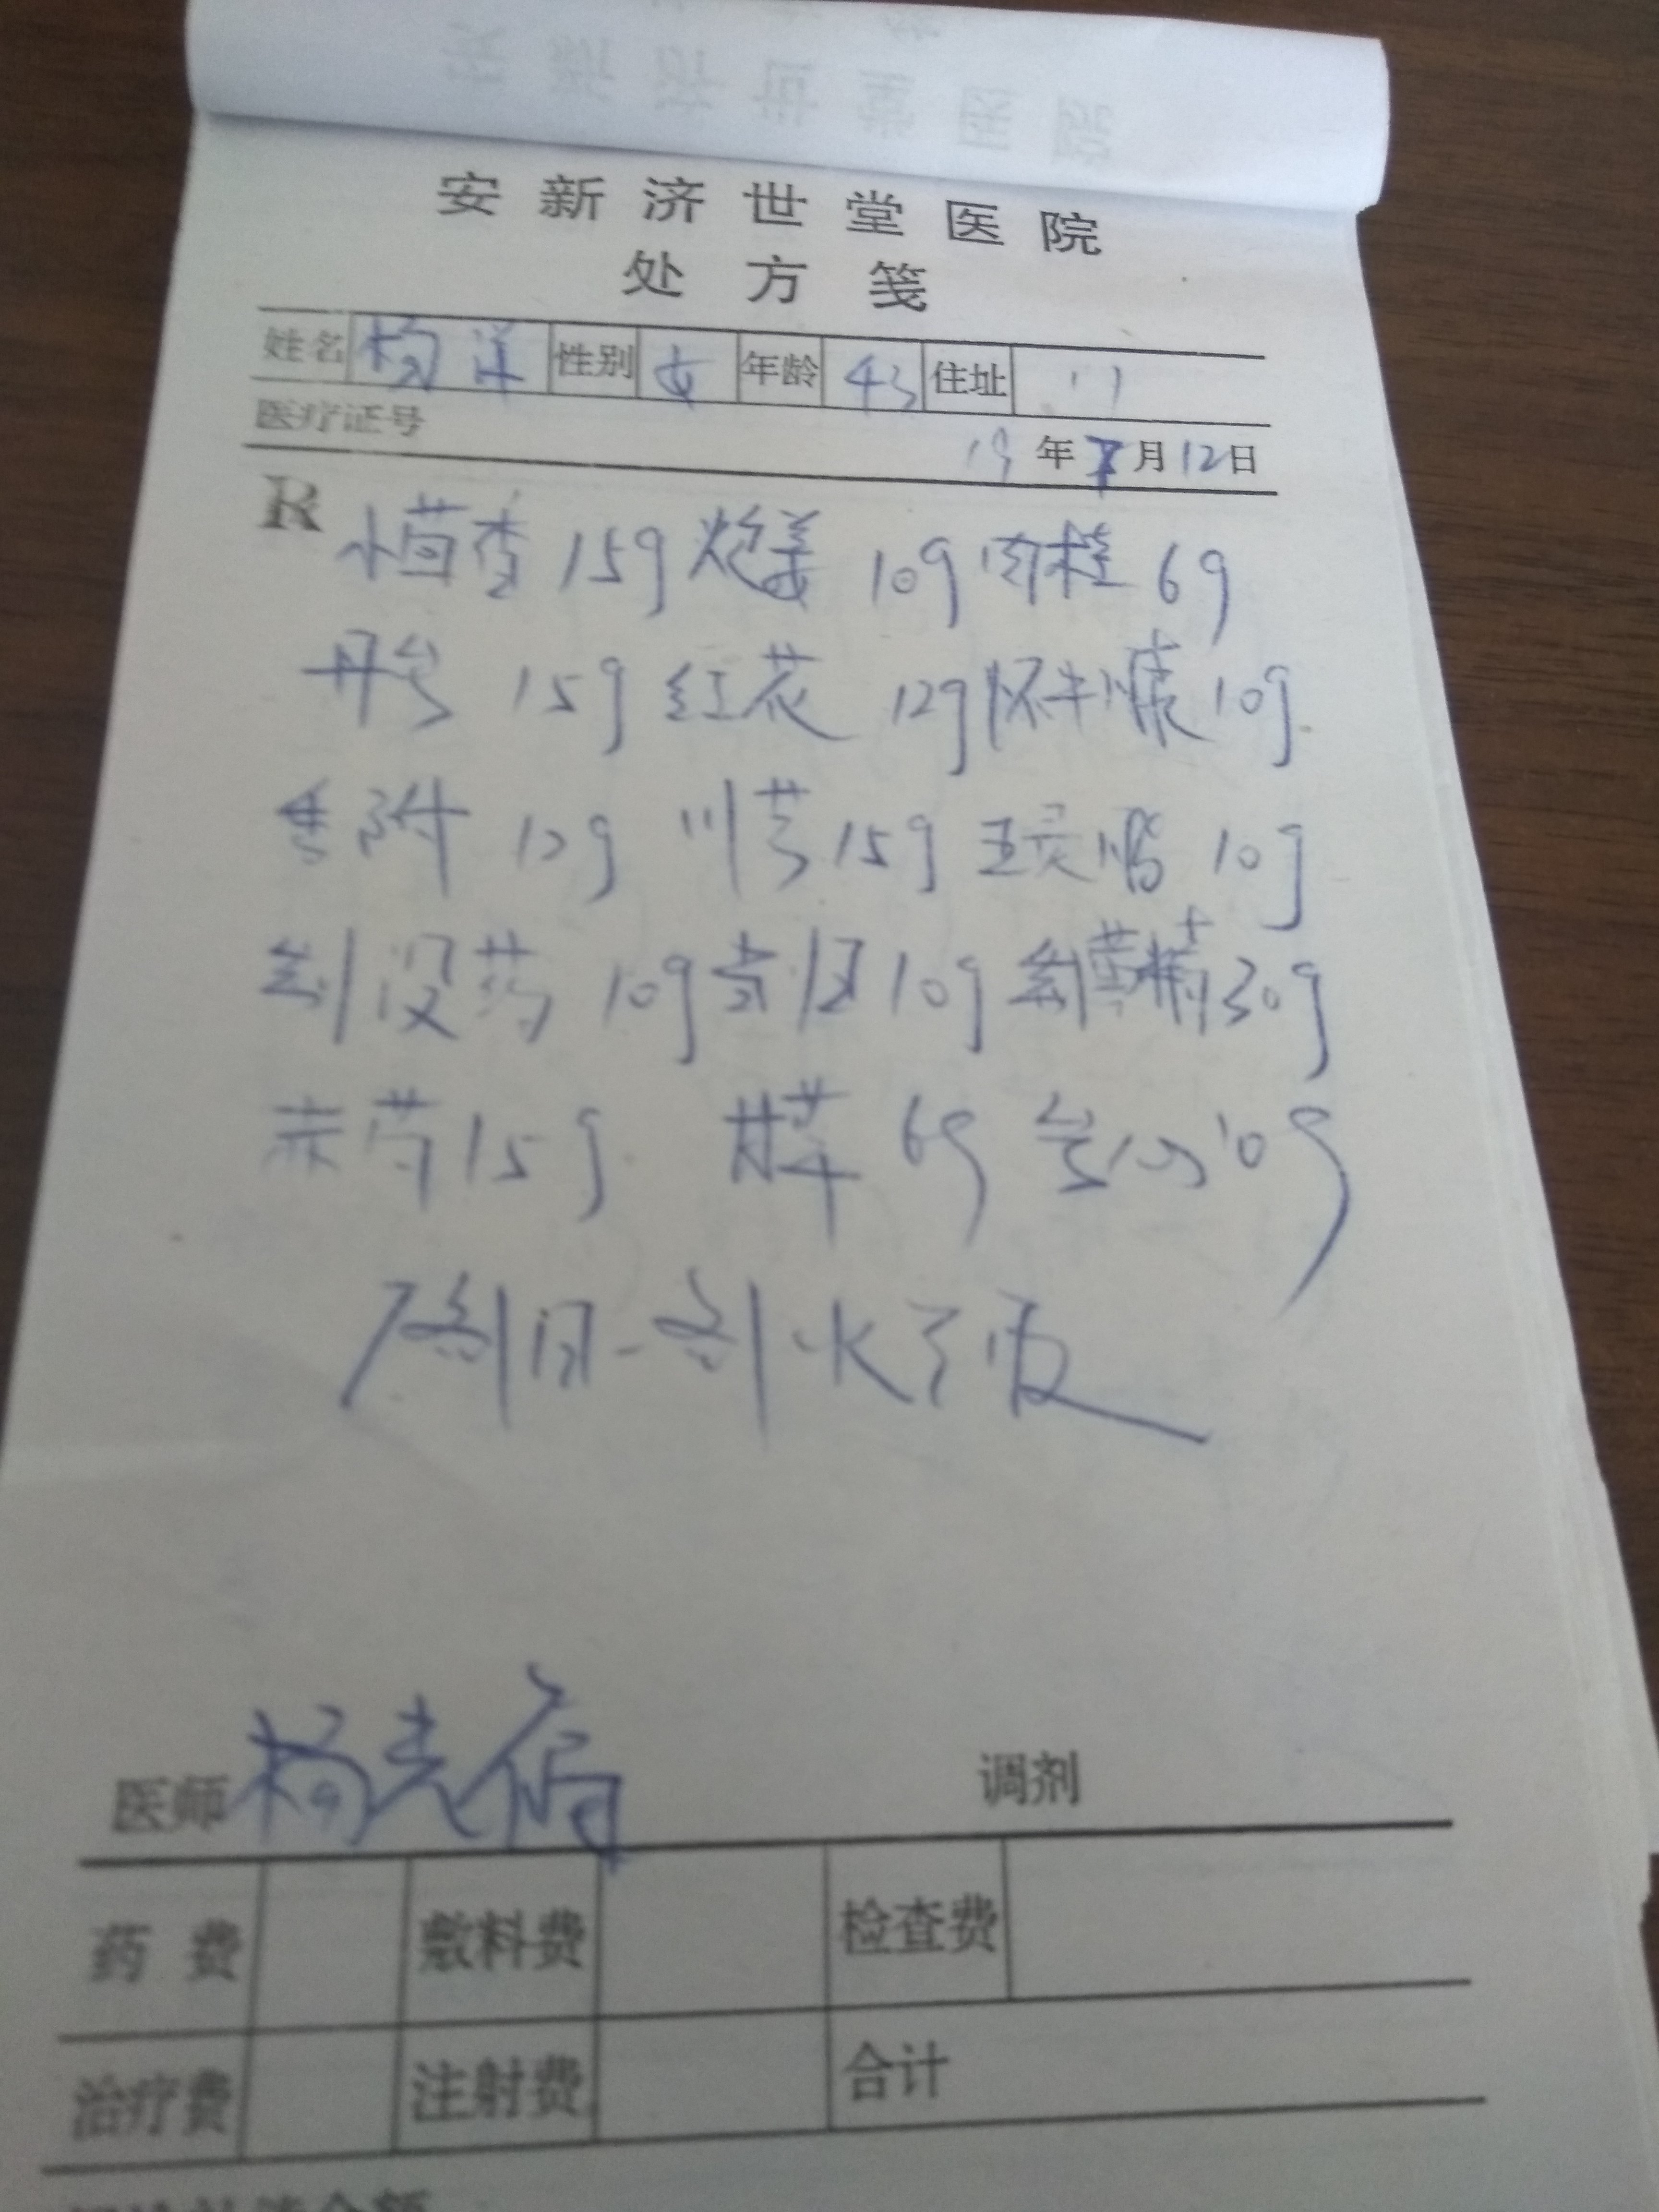 安新济世堂医院
处方笺
姓名 杨洋 性别 女 年龄 43 住址
医疗证号
19年7月12日
R 小茴香 15g 炮姜 10g 肉桂 6g
丹参 15g 红花 12g 怀牛膝 10g
香附 12g 川芎 15g 五灵脂 10g
制没药 10g 当归 10g 制黄精 30g
赤芍 15g 甘草 6g 10g
剂 日一剂 水煎服
医师 杨志 调剂
药费 敷料费 检查费
治疗费 注射费 合计